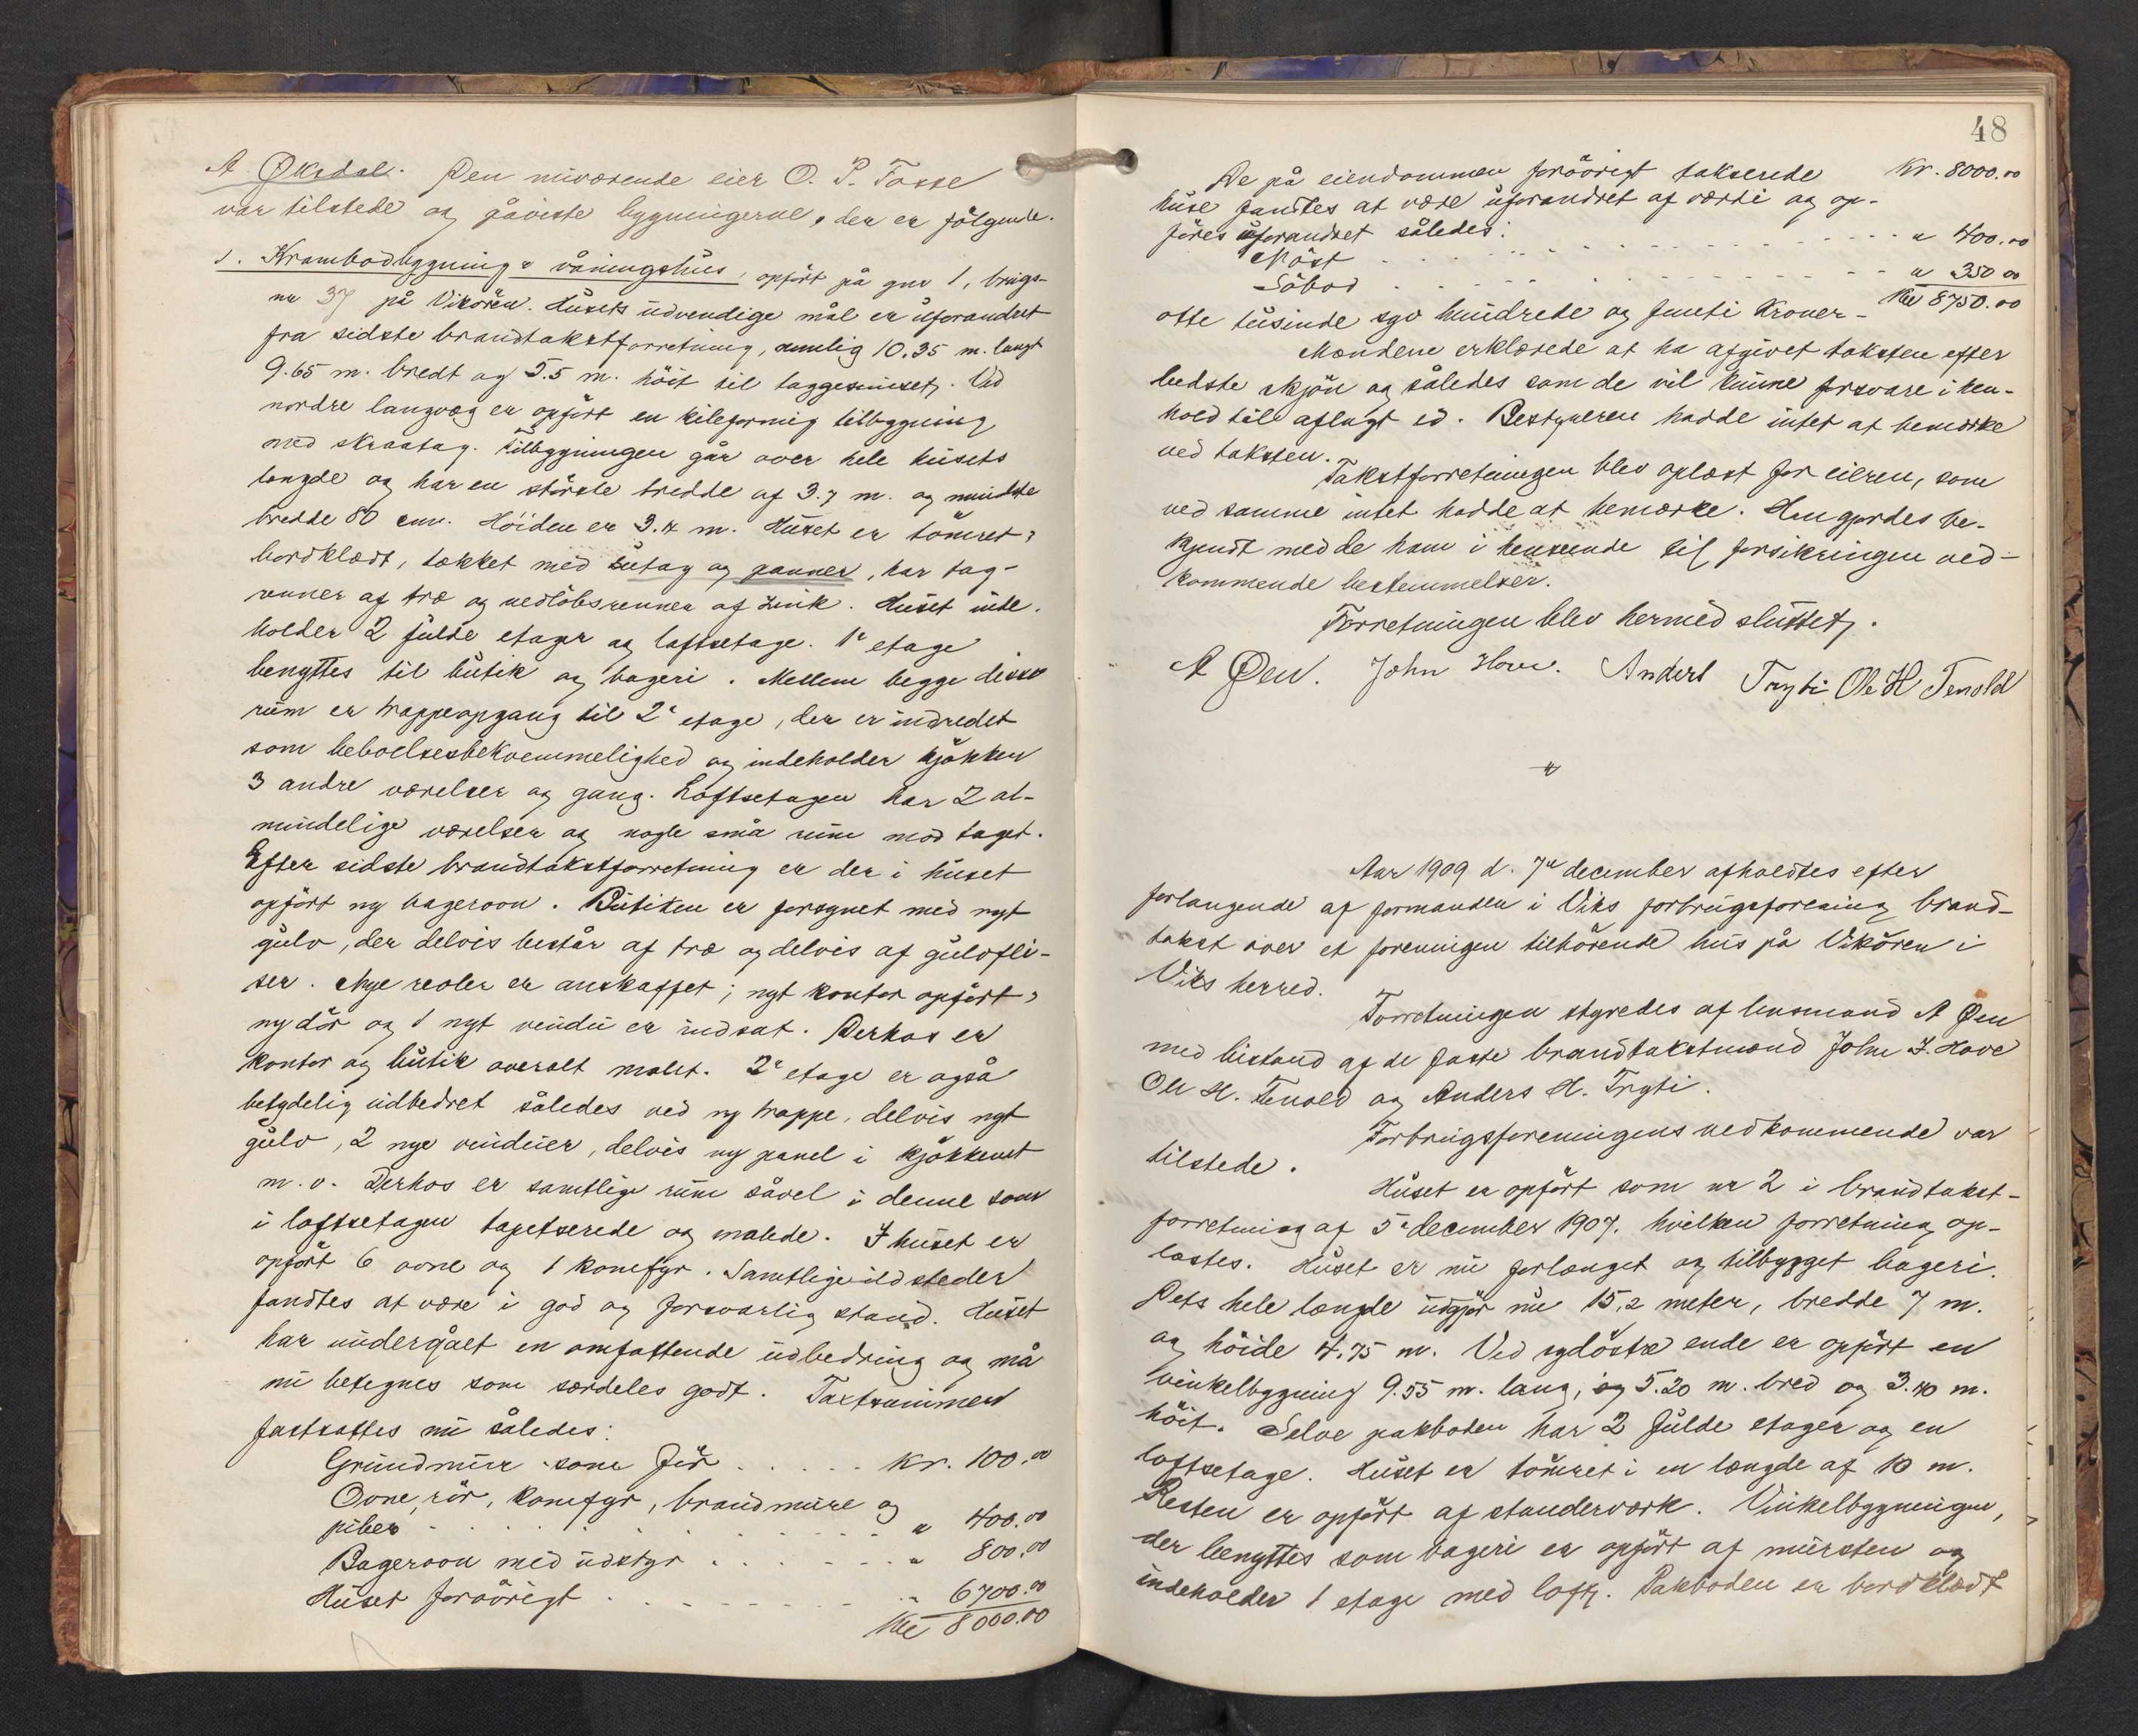 A. Øksdal. Den nuværende eier O. P. Tosse
var tilstede og påviste bygningerne, der er følgende.
1. Krambodbygning & våningshus, opført på gnr 1, brugs-
nr 37 på Vikøren. Husets udvendige mål er uforandret
fra sidste brandtakstforretning, nemlig 10.35 m. langt
9.65 m. bredt og 5.5 m. høit til taggesimset. Ved
nordre langvæg er opført en kileformig tilbygning
med skraatag. Tilbygningen går over hele husets
længde og har en største bredde af 3.7 m. og mindste
bredde 80 cm. Høiden er 3.4 m. Huset er tømret,
bordklædt, tækket med sutag og panner, har tag-
renner af træ og nedløbsrenner af zink. Huset inde-
holder 2 fulde etager og loftsetage. 1e etage
benyttes til butik og bageri. Mellem begge disse
rum er trappeopgang til 2e etage, der er indredet
som beboelsesbekvemmelighed og indeholder kjøkken
3 andre værelser og gang. Loftsetagen har 2 al-
mindelige værelser og nogle små rum mod taget.
Efter sidste brandtakstforretning er der i huset
opført ny bagerovn. Butiken er forsynet med nyt
gulv, der delvis består af træ og delvis af gulvfli-
ser. Nye reoler er anskaffet; nyt kontor opført,
ny dør og 1 nyt vindu er indsat. Derhos er
kontor og butik overalt malet. 2e etage er også
betydelig udbedret således ved ny trappe, delvis nyt
gulv, 2 nye vinduer, delvis ny panel i kjøkkenet
m. v. Derhos er samtlige rum såvel i denne som
i loftsetagen tapetserede og malede. I huset er
opført 6 ovne og 1 komfyr. Samtlige ildsteder
fandtes at være i god og forsvarlig stand. Huset
har undergået en omfattende udbedring og må
nu betegnes som særdeles godt. Taxtsummen
fastsattes nu således:
Grundmur som før . . . . . kr. 100.00
Ovne, rør, komfyr, brandmure og
piber . . . . . . . . . . . . " 400.00
Bagerovn med udstyr . . . . . . . " 800.00
Huset forøvrigt . . . . . . . . " 6700.00
Kr 8000.00
48
De på eiendommen forøvrigt takserede Kr. 8000.00
huse fandtes at være uforandret af værdi og op-
føres uforandret således:
Nøst . . . . . . . . . . . . " 400.00
Søbod . . . . . . . . . . . . " 350.00
otte tusinde syv hundrede og femti Kroner - Kr 8750.00
Mændene erklærede at ha afgivet taksten efter
bedste skjøn og således som de vil kunne forsvare i hen-
hold til aflagt ed. Bestyreren hadde intet at bemærke
ved taksten.
Takstforretningen blev oplæst for eieren, som
ved samme intet hadde at bemærke. Han gjordes be-
kjendt med de ham i henseende til forsikringen ved-
kommende bestemmelser.
Forretningen blev hermed sluttet.
A Øen. John Hove. Anders Tryti Ole H Tenold
Aar 1909 d. 7de december afholdtes efter
forlangende af formanden i Viks forbrugsforening brand-
takst over et foreningen tilhørende hus på Vikøren i
Viks herred.
Forretningen styredes af lensmand A Øen
med bistand af de faste brandtakstmænd John I. Hove
Ole H. Tenold og Anders H. Tryti.
Forbrugsforeningens vedkommende var
tilstede.
Huset er opført som nr 2 i brandtakst-
forretning af 5e december 1907. hvilken forretning op-
læstes. Huset er nu forlænget og tilbygget bageri.
Dets hele længde udgjør nu 15,2 meter, bredde 7 m.
og høide 4.75 m. Ved sydøstre ende er opført en
vinkelbygning 9.55 m. lang, og 5.20 m. bred og 3.40 m.
høit. Selve pakboden har 2 fulde etager og en
loftsetage. Huset er tømret i en længde af 10 m.
Resten er opført af standerværk. Vinkelbygningen,
der benyttes som bageri er opført af mursten og
indeholder 1 etage med loft. Pakboden er bordklædt